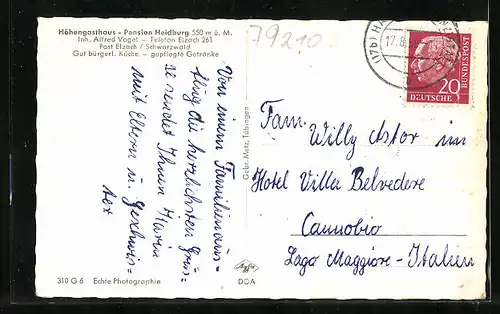 Höhengasthaus - Pension Heidburg 550 m ü. M.
Inh. Alfred Vogel - Telefon Elzach 261
Post Elzach / Schwarzwald
Gut bürgerl. Küche - gepflegte Getränke
79210
(17b) HA
17.8.
DEUTSCHE
BUNDESPOST
20
Von einem Familienaus-
flug die herzlichsten Grüs-
se sendet Ihnen Karin
mit Eltern u. Geschwis-
ter
Gebr. Metz, Tübingen
Fam. Willy Astor im
Hotel Villa Belvedere
Cannobio
Lago Maggiore - Italien
310 G 6 Echte Photographie
Agfa
DOA